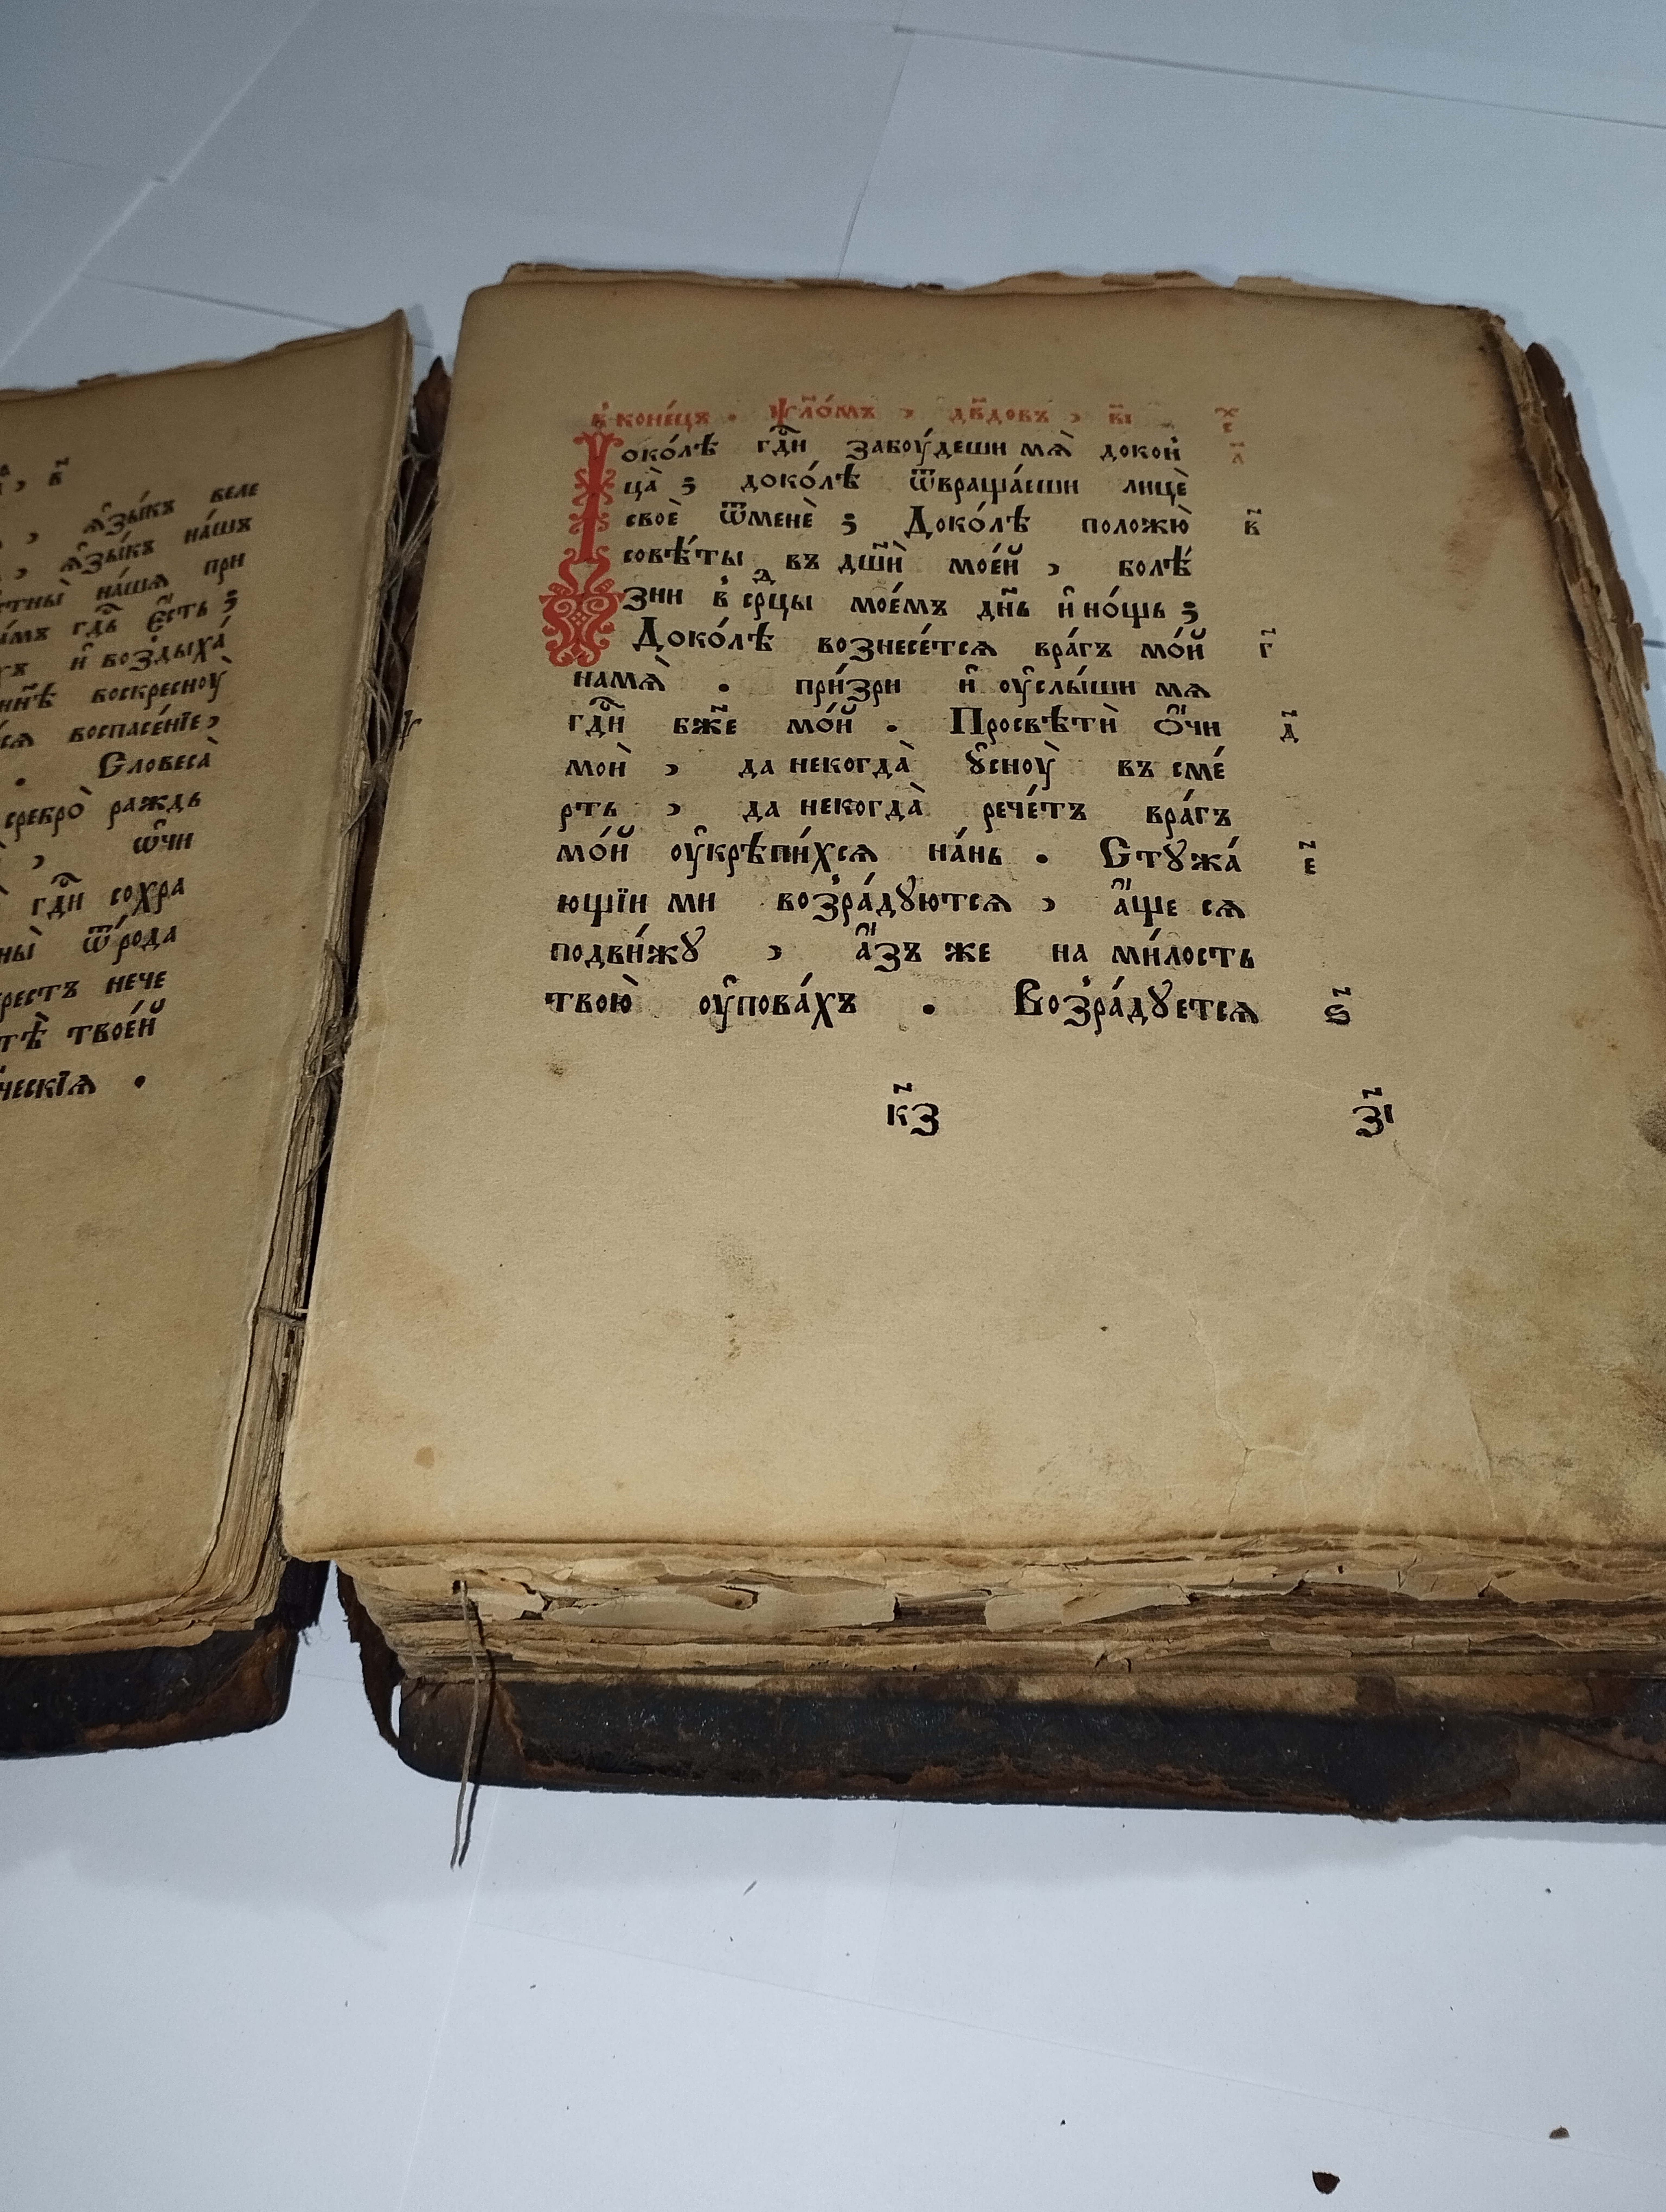 а҃, в҃
, ѧ҆зы́къ веле
, ѧ҆зы́къ на́шъ
на́шѧ при
гдⷭ҇ь є҆́сть ;
и҆ воз̾дыха́
воскресноу̀
воспасе́нїе ,
. Словеса̀
сребро̀ раждь
, ѡ҆́чи
гдⷭ҇и сохра
ѿ ро́да
нече
твое́й
ческїѧ .
в̾ коне́цъ . ѱло́мъ , дв҃довъ , в҃і
Доко́лѣ гдⷭ҇и забоу́деши мѧ̀ докон̾
ца̀ ; доко́лѣ ѿвраща́еши лицѐ
своѐ ѿменѐ ; Доко́лѣ положю̀ в҃
совѣ́ты въ дш҃и мое́й , болѣ́
зни в̾ срⷣцы мое́мъ дн҃ь и҆ но́щь ;
Доко́лѣ вознесе́тсѧ вра́гъ мо́й г҃
намѧ̀ . при́зри и҆ оу҆слы́ши мѧ
гдⷭ҇и бж҃е мо́й . Просвѣтѝ ѻ҆́чи д҃
моѝ , да некогда̀ ꙋ҆сноу̀ въ сме́
рть , да некогда̀ рече́тъ вра́гъ
мо́й оу҆крѣпи́хсѧ на́нь . Стꙋжа́ е҃
ющїи ми воз̾ра́дꙋютсѧ , а҆́ще сѧ
подви́жꙋ , а҆́зъ же на ми́лость
твою̀ оу҆пова́хъ . Воз̾ра́дꙋетсѧ ѕ҃
к҃з з҃і